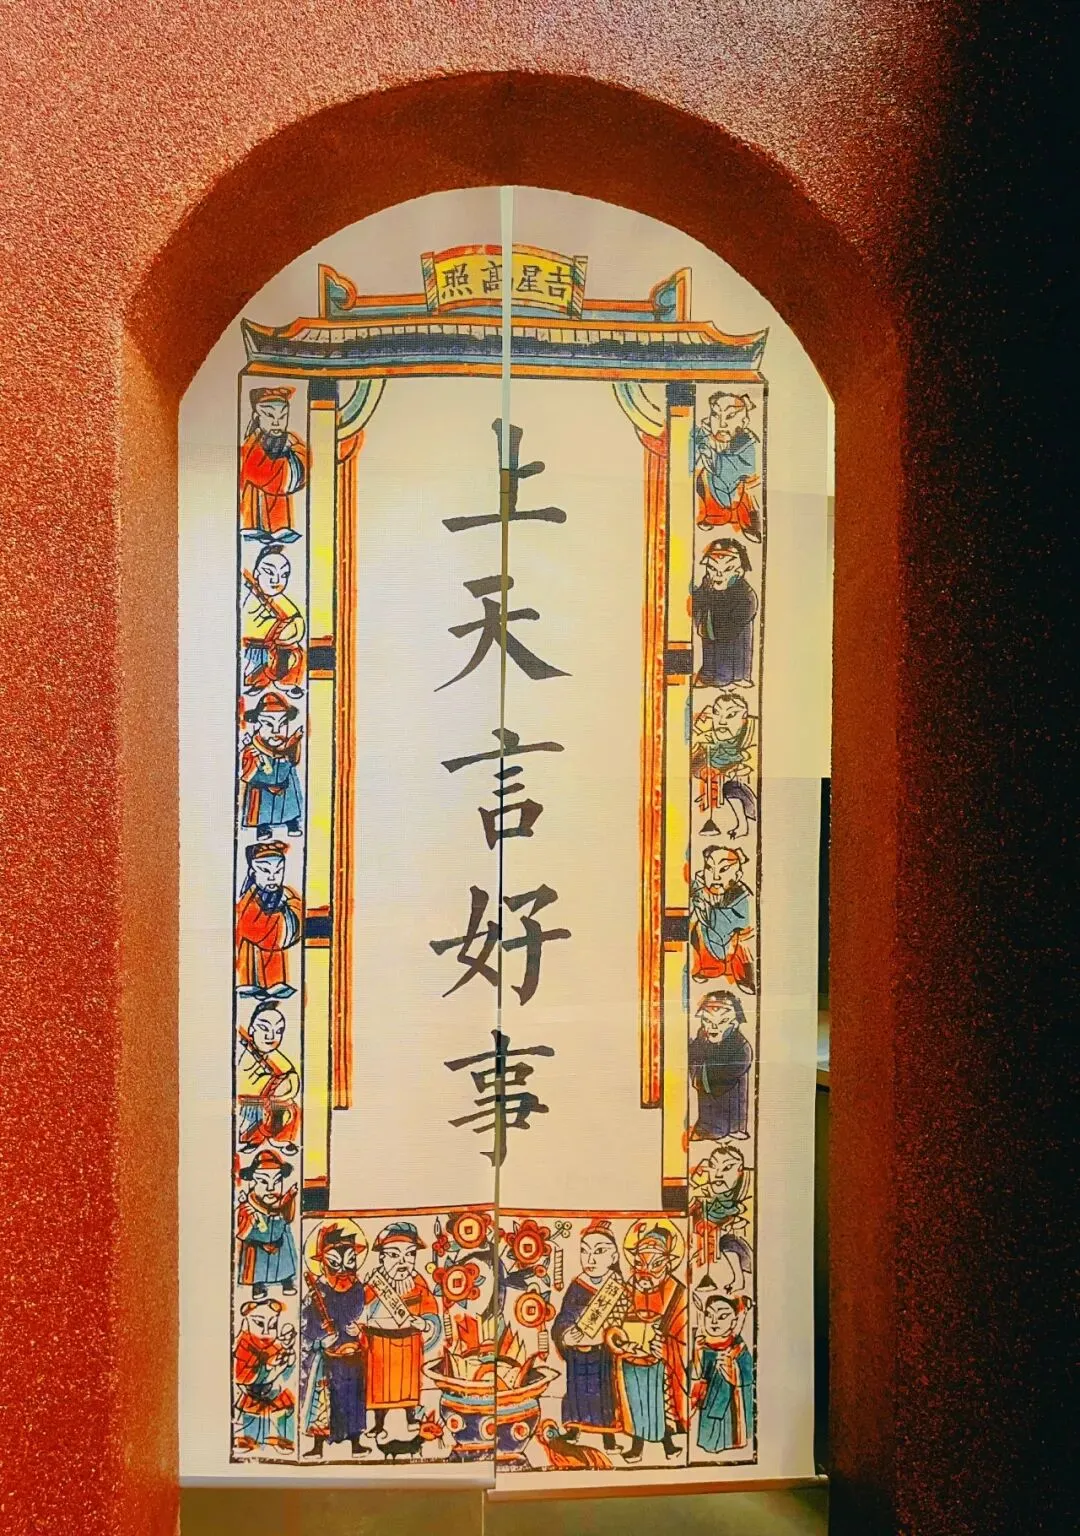 吉星高照
上天言好事